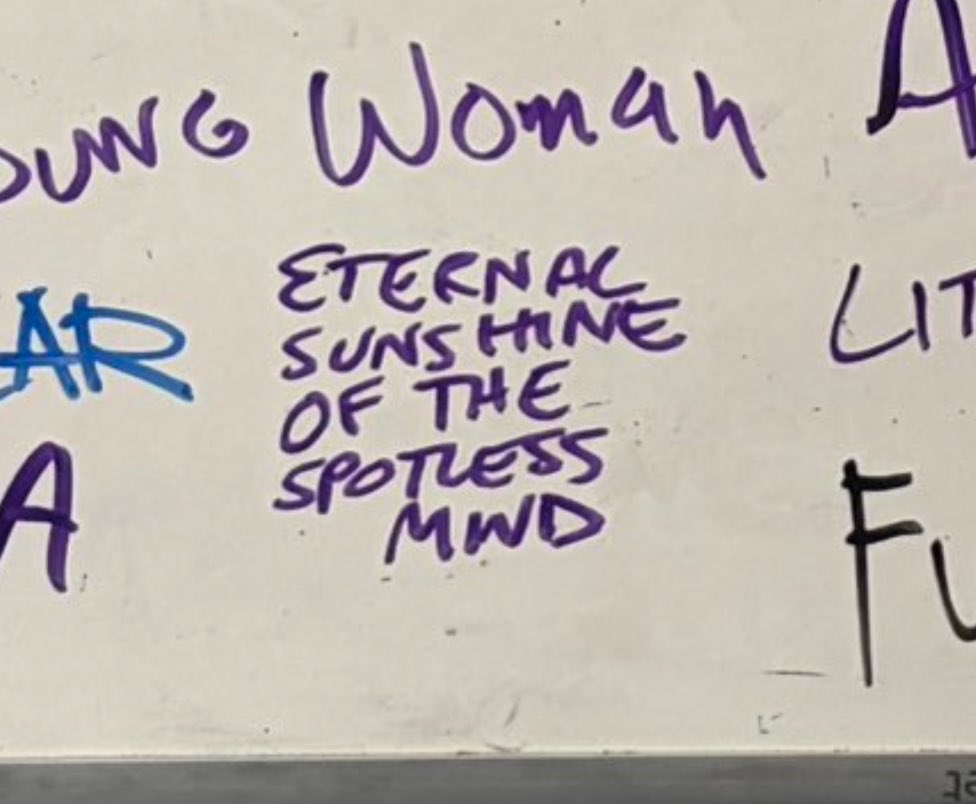 OUNG Woman A
ETERNAL
SUNSHINE
OF THE
SPOTLESS
MIND
AR
A
LIT
FU